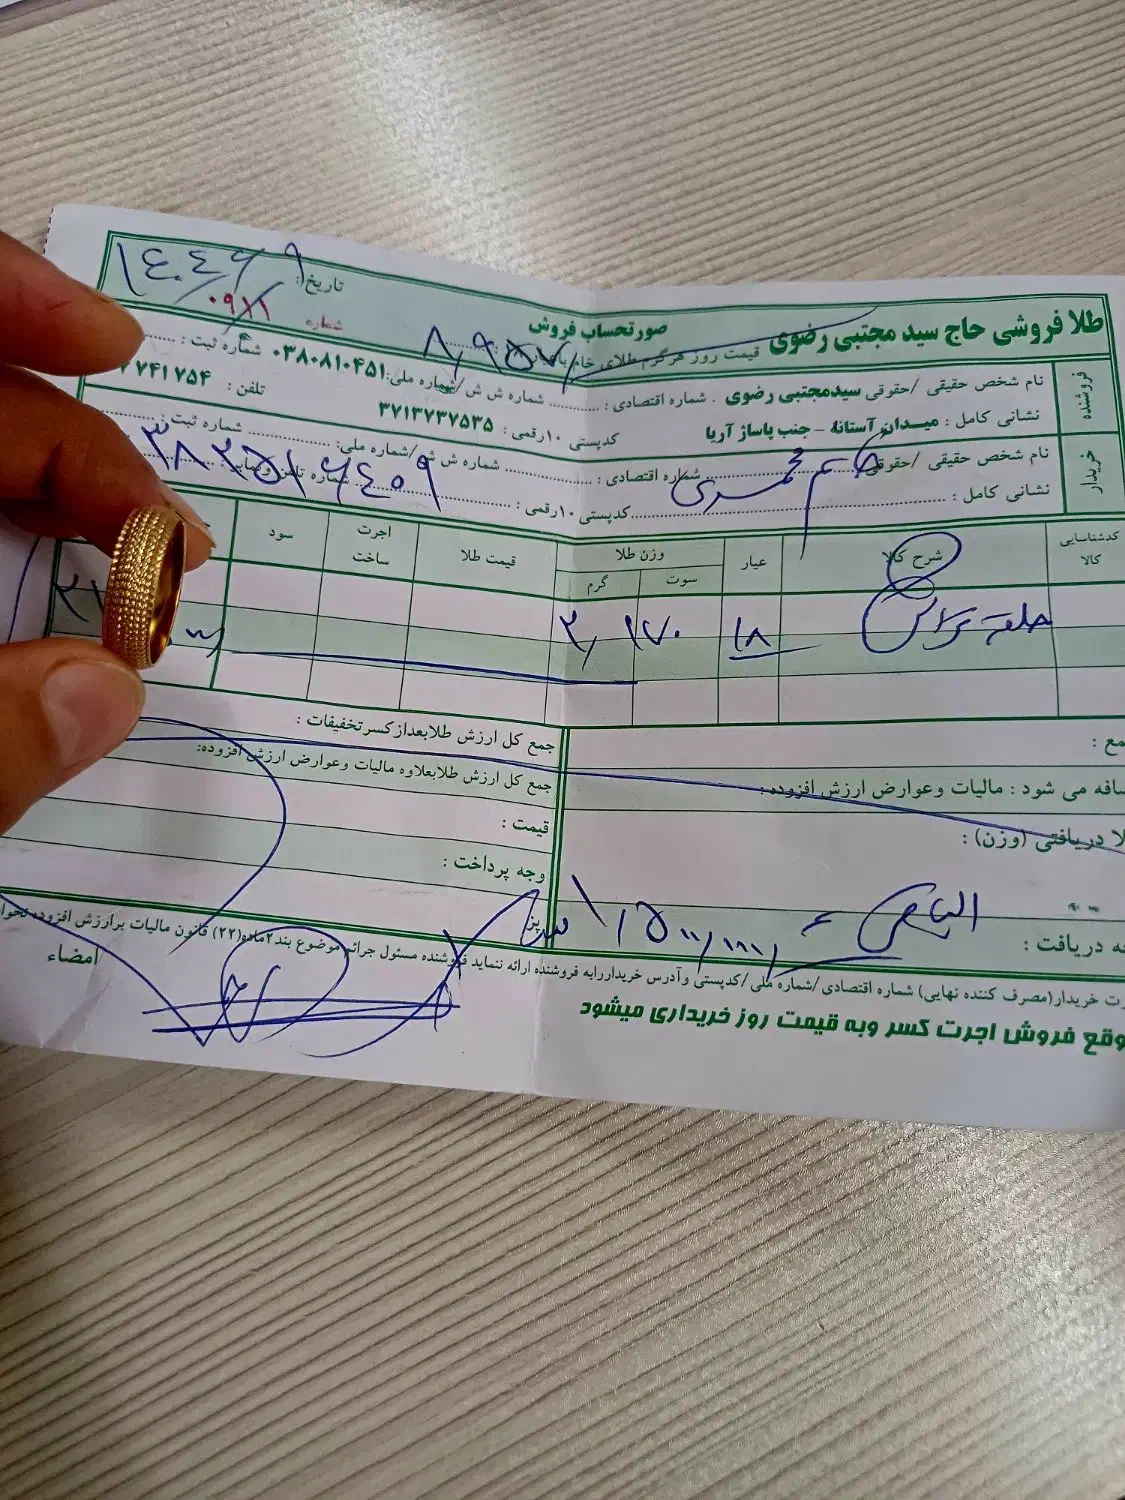 تاریخ: ۱۴۰۴/۶/۹
شماره ۰۹۸۱
طلا فروشی حاج سید مجتبی رضوی
صورتحساب فروش
قیمت روز هر گرم طلای خام ۸,۹۵۷
فروشنده
نام شخص حقیقی /حقوقی سیدمجتبی رضوی . شماره اقتصادی : شماره ش ش/شماره ملی: ۰۳۸۰۸۱۰۴۵۱ شماره ثبت :
نشانی کامل : میدان آستانه - جنب پاساژ آریا کدپستی ۱۰رقمی : ۳۷۱۳۷۳۷۵۳۵ تلفن : ۷۷۴۱۷۵۴
خریدار
نام شخص حقیقی /حقوقی شماره اقتصادی : شماره ش ش/شماره ملی: شماره ثبت
نشانی کامل : کدپستی ۱۰رقمی :
کدشناسایی کالا شرح کالا عیار وزن طلا قیمت طلا اجرت ساخت سود
سوت گرم
حلقه تراش ۱۸ ۱۷۰ ۲,
جمع کل ارزش طلابعدازکسرتخفیفات :
جمع کل ارزش طلابعلاوه مالیات وعوارض ارزش افزوده:
قیمت :
وجه پرداخت :
مع :
ضافه می شود : مالیات وعوارض ارزش افزوده :
لا دریافتی (وزن) :
جه دریافت :
رت خریدار(مصرف کننده نهایی) شماره اقتصادی /شماره ملی /کدپستی وآدرس خریداررابه فروشنده ارائه ننماید فروشنده مسئول جرائم موضوع بند۲ماده(۲۲) قانون مالیات برارزش افزوده نخواه
وقع فروش اجرت کسر وبه قیمت روز خریداری میشود
امضاء